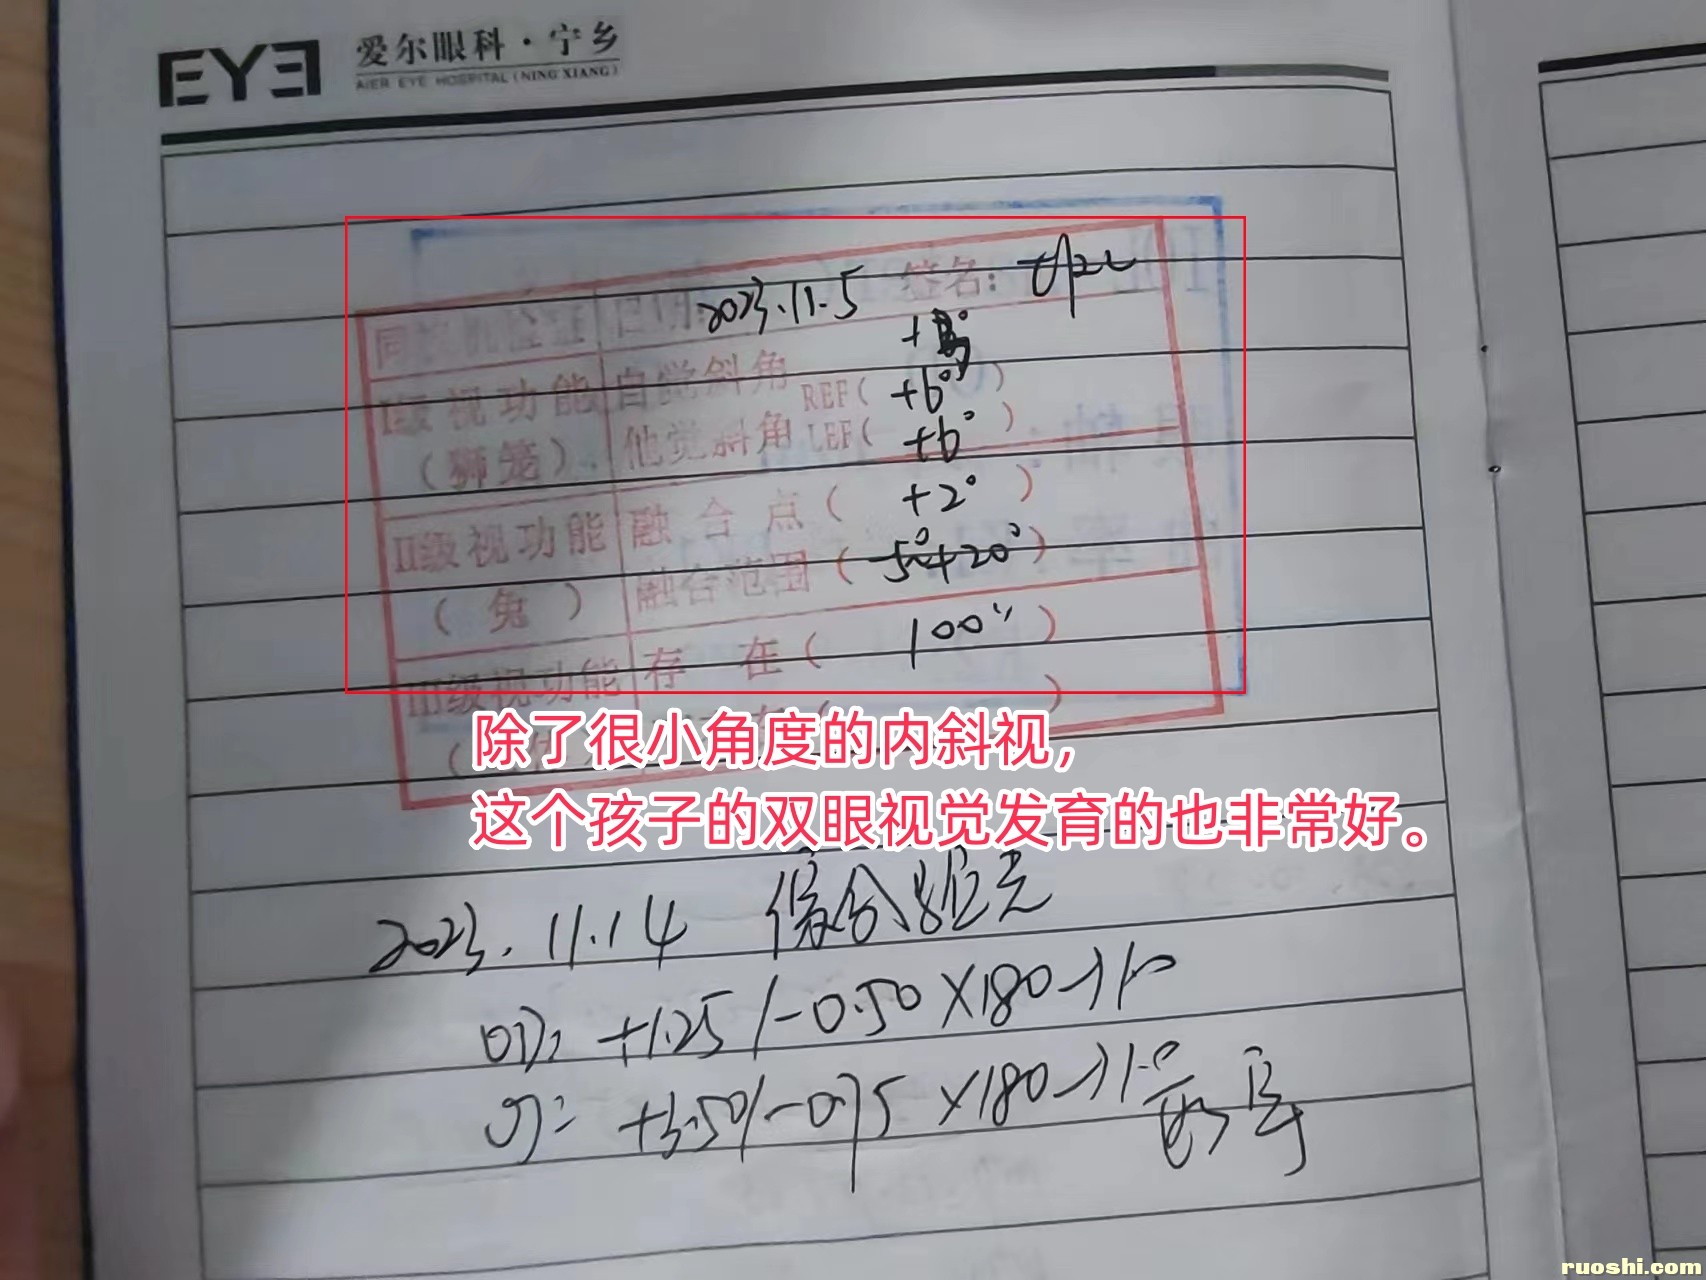 EYE 爱尔眼科·宁乡
AIER EYE HOSPITAL (NING XIANG)
日期: 2023.11.5 签名:
I级视功能 自觉斜角
(狮笼) 他觉斜角 REF( +6° )
LEF( +6° )
II级视功能 融合点( +2° )
(兔) 融合范围( -5°+20° )
III级视功能 存在( 100" )
除了很小角度的内斜视,
这个孩子的双眼视觉发育的也非常好。
2023.11.14
OD: +1.25/-0.50×180→1.0
OS: +3.50/-0.75×180→1.0
ruoshi.com